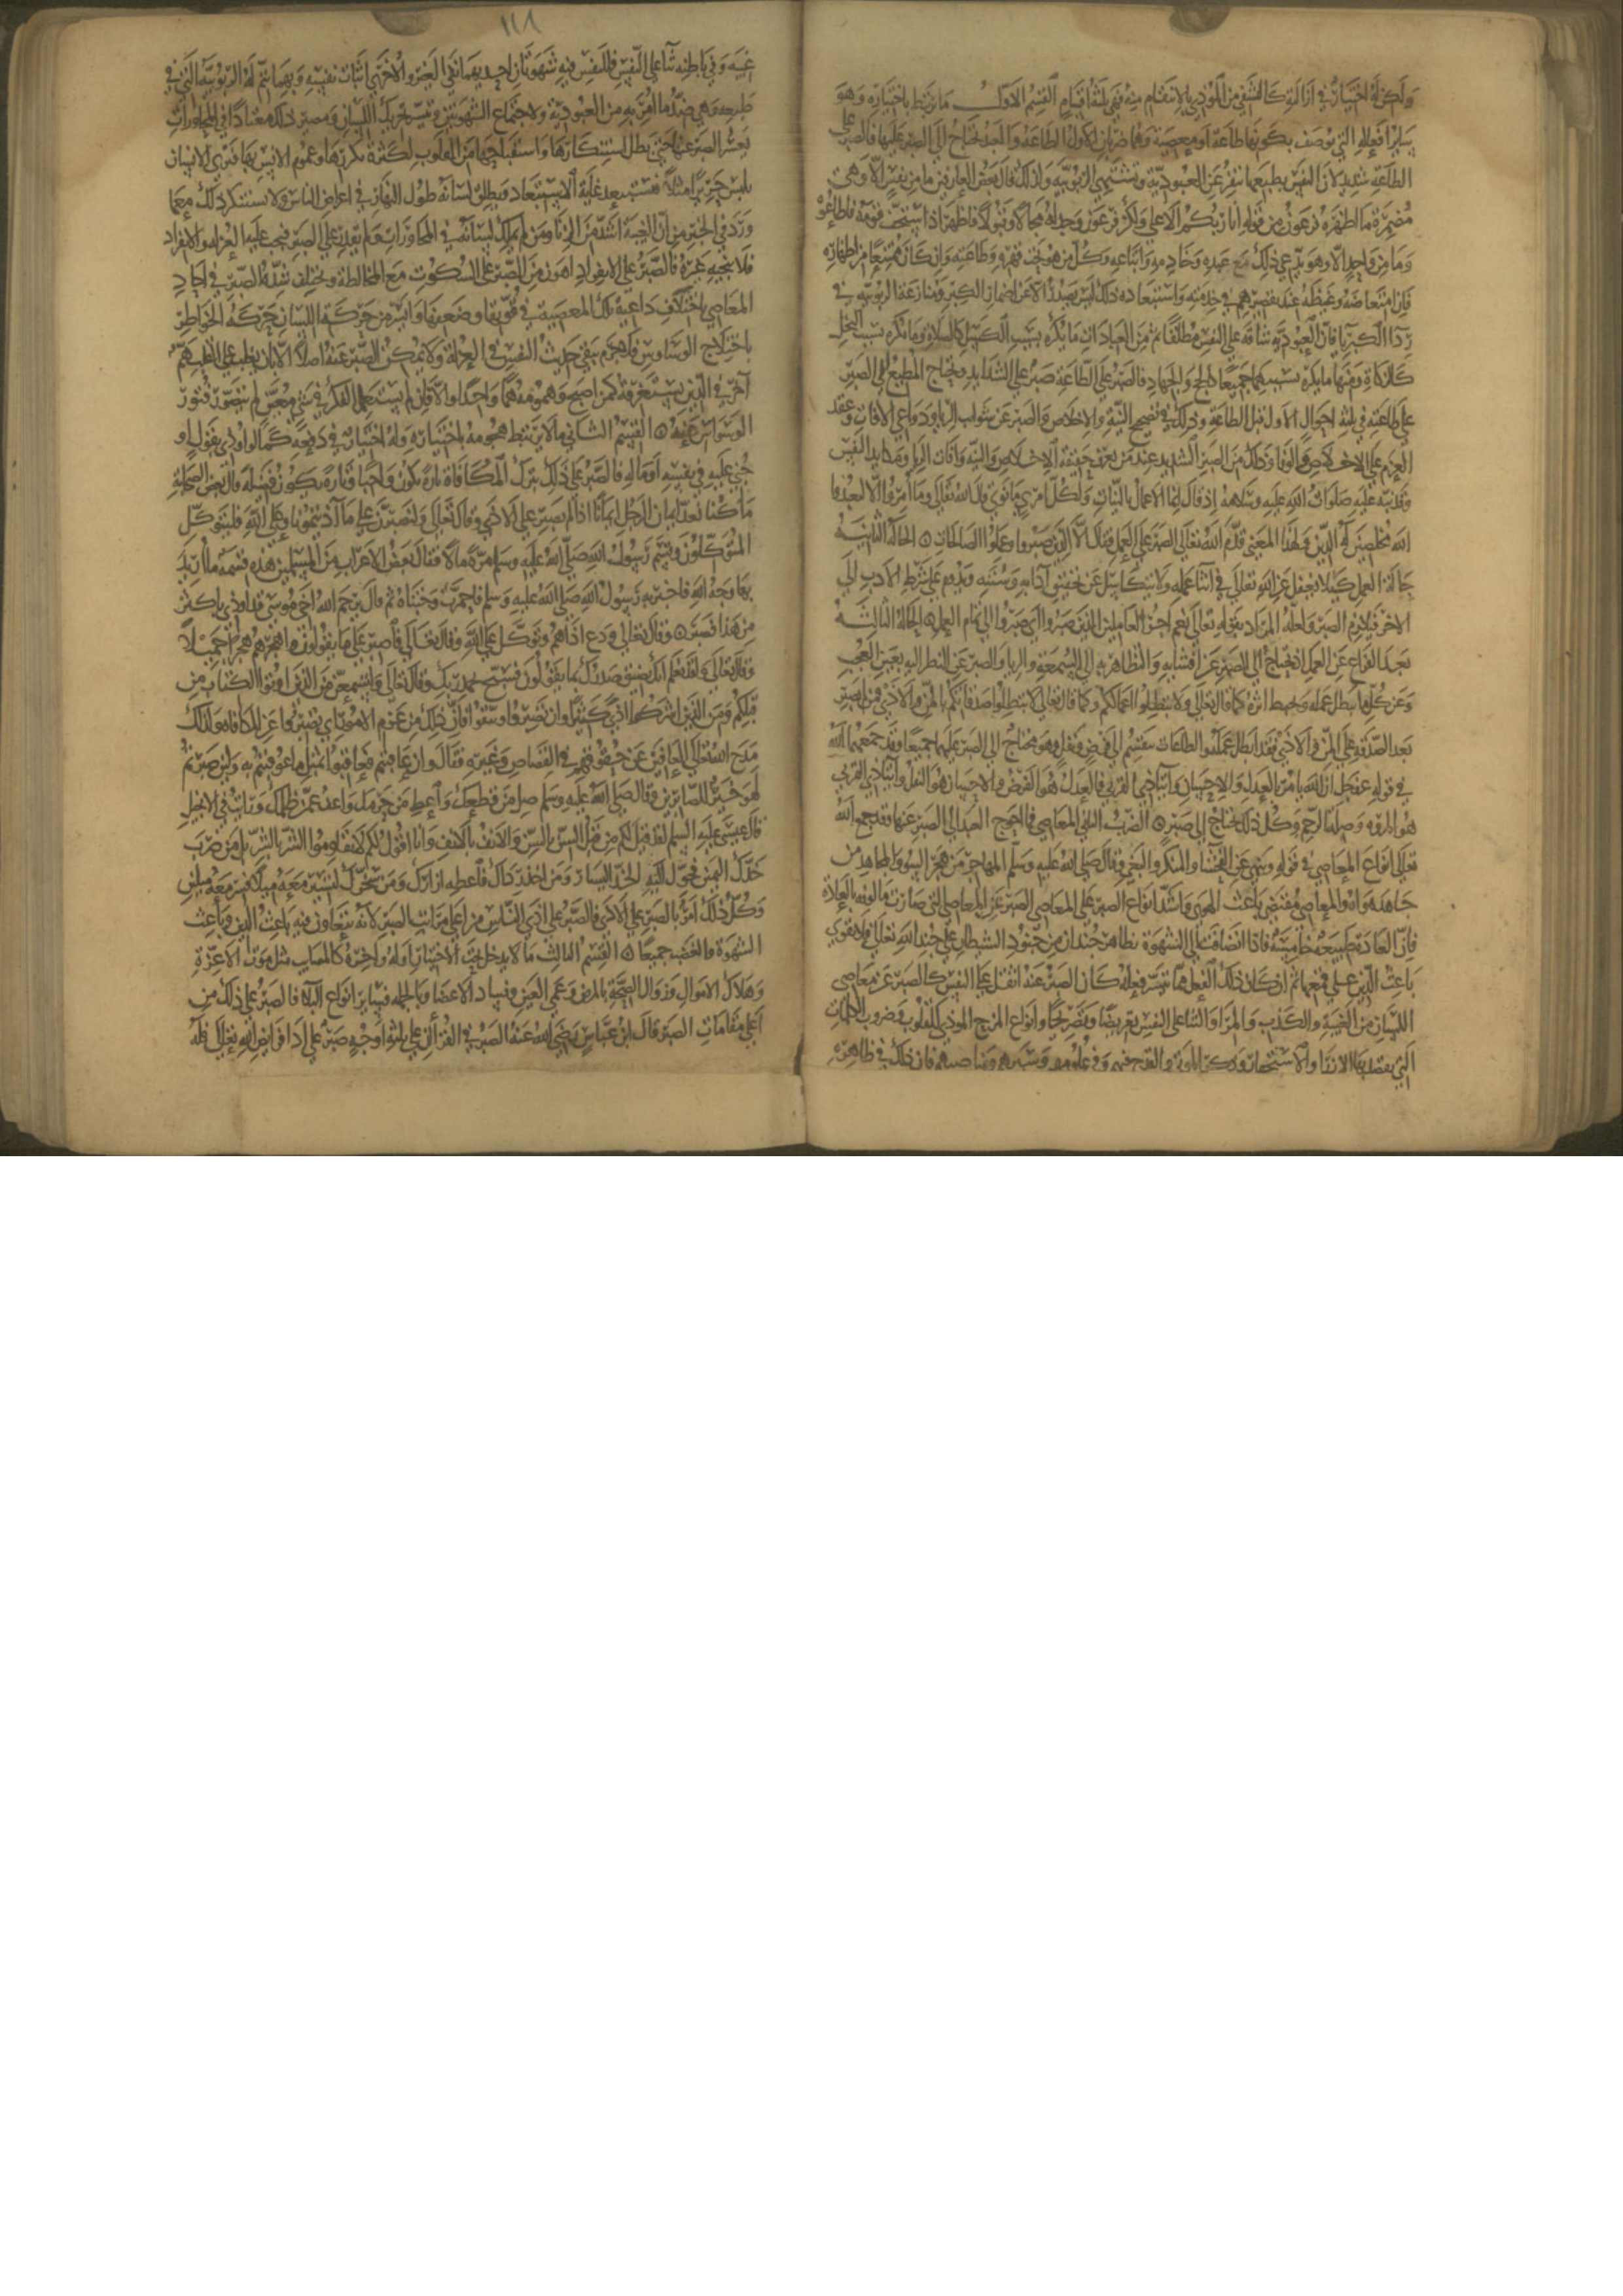 ولكن له اختيار في ازالته كالتشفي من الموذي بالانتقام منه فهي ثلثة اقسام القسم الاول ما يرتبط باختياره وهو
ساير افعاله التي توصف بكونها طاعة او معصية وهما ضربان الاول الطاعة والعبد يحتاج الى الصبر عليها فالصبر على
الطاعة شديد لان النفس بطبعها تنفر عن العبودية وتشتهي الربوبية ولذلك قال بعض العارفين ما من نفس الا وهي
مضمرة ما اظهره فرعون من قوله انا ربكم الاعلى ولكن فرعون وجد له مجالا وقبولا فاظهر اذ استخف قومه فاطاعوه
وما من واحد الا وهو يدعي ذلك مع عبده وخادمه واتباعه وكل من هو تحت قهره وطاعته وان كان ممتنعا من اظهاره
فان امتعاضه وغيظه عند تقصيرهم في خدمته واستبعاده ذلك ليس يصدر الا عن اضمار الكبر ومنازعة الربوبية في
ردا الكبريا فان العبودية شاقة على النفس مطلقا ثم من العبادات ما يكره بسبب الكسل كالصلاة ومنها ما يكره بسبب البخل
كالزكاة ومنها ما يكره بسببهما جميعا كالحج والجهاد فالصبر على الطاعة صبر على الشدايد ويحتاج المطيع الى الصبر
على طاعته في ثلثة احوال الاول قبل الطاعة وذلك في تصحيح النية والاخلاص والصبر عن شوايب الريا ودواعي الافات وعقد
العزم على الاخلاص والوفا وذلك من الصبر الشديد عند من يعرف حقيقة الاخلاص والنية وافات الريا ومكايد النفس
وقد نبه عليه صلوات الله عليه وسلامه اذ قال انما الاعمال بالنيات ولكل امرئ ما نوى وقال الله تعالى وما امروا الا ليعبدوا
الله مخلصين له الدين ولهذا المعنى قدم الله تعالى الصبر على العمل فقال الا الذين صبروا وعملوا الصالحات الحالة الثانية
حالة العمل كيلا يغفل عن الله تعالى في اثنا عمله ولا يتكاسل عن تحقيق آدابه وسننه ويدوم على شرط الادب الى
الاخر فيلازم الصبر ولعله المراد بقوله تعالى نعم اجر العاملين الذين صبروا اي صبروا الى تمام العمل الحالة الثالثة
بعد الفراغ عن العمل اذ يحتاج الى الصبر عن افشايه والتظاهر به الى السمعة والريا والصبر عن النظر اليه بعين العجب
وعن كل ما يبطل عمله ويحبط اثره كما قال تعالى ولا تبطلوا اعمالكم وكما قال تعالى لا تبطلوا صدقاتكم بالمن والاذى فمن لم يصبر
بعد الصدقة على المن والاذى فقد ابطل عمله والطاعات تنقسم الى فرض ونفل وهو محتاج الى الصبر عليها جميعا وقد جمعهما الله
في قوله عز وجل ان الله يامر بالعدل والاحسان وايتاء ذي القربى فالعدل هو الفرض والاحسان هو النفل وايتاء ذي القربى
هو المروة وصلة الرحم وكل ذلك يحتاج الى صبر الضرب الثاني المعاصي فما احوج العبد الى الصبر عنها وقد جمع الله
تعالى انواع المعاصي في قوله وينهى عن الفحشا والمنكر والبغي وقال صلى الله عليه وسلم المهاجر من هجر السو والمجاهد من
جاهد هواه والمعاصي مقتضى باعث الهوى واشد انواع الصبر على المعاصي الصبر عن المعاصي التي صارت مالوفة بالعادة
فان العادة طبيعة خامسة فاذا انضافت الى الشهوة تظاهر جندان من جنود الشيطان على جند الله تعالى فلا يقوى
باعث الدين على قمعها ثم ان كان ذلك الفعل مما تيسر فعله كان الصبر عنه اثقل على النفس كالصبر عن معاصي
اللسان من الغيبة والكذب والمرا والثنا على النفس تعريضا وتصريحا وانواع المزح الموذي للقلوب وضروب الكلمات
التي يقصد بها الازرا والاستحقار وذكر الموتى والقدح فيهم وفي علومهم وسيرهم ومناصبهم فان ذلك في ظاهره
١١٨
غيبة وفي باطنه ثنا على النفس فللنفس فيه شهوتان احديهما نفي الغير والاخرى اثبات نفسه وبهما تتم له الربوبية التي في
طبعه وهي ضد ما امر به من العبودية ولاجتماع الشهوتين وتيسر تحريك اللسان ومصير ذلك معتادا في المحاورات
يعسر الصبر عنها حتى بطل استنكارها واستقباحها من القلوب لكثرة تكررها وعموم الانس بها فترى الانسان
يلبس حريرا مثلا فيستبعد غاية الاستبعاد ويطلق لسانه طول النهار في اعراض الناس ولا يستنكر ذلك مع ما
ورد في الخبر من ان الغيبة اشد من الزنا ومن لم يملك لسانه في المحاورات ولم يقدر على الصبر فيجب عليه العزلة والانفراد
فلا ينجيه غيره فالصبر على الانفراد اهون من الصبر على السكوت مع المخالطة ويختلف شدة الصبر في احاد
المعاصي باختلاف داعية تلك المعصية في قوتها وضعفها وايسر من حركة اللسان حركة الخواطر
باختلاج الوساوس فلا جرم يبقى حديث النفس في العزلة ولا يمكن الصبر عنه اصلا الا بان يغلب على القلب هم
آخر في الدين يستغرقه كمن اصبح وهمومه هما واحدا والا فان لم يستعمل الفكر في شي معين لم يتصور فتور
الوسواس عنه القسم الثاني ما لا يرتبط هجومه باختياره وله اختيار في دفعه كما لو اوذي بقول او
جني عليه في نفسه او ماله فالصبر على ذلك بترك المكافاة تارة يكون واجبا وتارة يكون فضيلة قال بعض الصحابة
ما كنا نعد ايمان الرجل ايمانا اذا لم يصبر على الاذى وقال تعالى ولنصبرن على ما آذيتمونا وعلى الله فليتوكل
المتوكلون وقسم رسول الله صلى الله عليه وسلم مرة مالا فقال بعض الاعراب من المسلمين هذه قسمة ما اريد
بها وجه الله فاخبر به رسول الله صلى الله عليه وسلم فاحمرت وجنتاه ثم قال يرحم الله اخي موسى قد اوذي باكثر
من هذا فصبر وقال تعالى ودع اذاهم وتوكل على الله وقال تعالى فاصبر على ما يقولون واهجرهم هجرا جميلا
وقال تعالى ولقد نعلم انك يضيق صدرك بما يقولون فسبح بحمد ربك وقال تعالى ولتسمعن من الذين اوتوا الكتاب من
قبلكم ومن الذين اشركوا اذى كثيرا وان تصبروا وتتقوا فان ذلك من عزم الامور اي تصبروا عن المكافاة ولذلك
مدح الله تعالى العافين عن حقوقهم في القصاص وغيره فقال وان عاقبتم فعاقبوا بمثل ما عوقبتم به ولئن صبرتم
لهو خير للصابرين وقال صلى الله عليه وسلم صل من قطعك واعط من حرمك واعف عمن ظلمك ورايت في الانجيل
قال عيسى عليه السلم لقد قيل لكم من قبل السن بالسن والانف بالانف وانا اقول لكم لا تقاوموا الشر بالشر بل من ضرب
خدك اليمنى فحول اليه الخد اليسار ومن اخذ رداك فاعطه ازارك ومن سخرك لتسير معه ميلا فسر معه ميلين
وكل ذلك امر بالصبر على الاذى فالصبر على اذى الناس من اعلى مراتب الصبر لانه يتعاون فيه باعث الدين وباعث
الشهوة والغضب جميعا القسم الثالث ما لا يدخل تحت الاختيار اوله واخره كالمصايب مثل موت الاعزة
وهلاك الاموال وزوال الصحة بالمرض وعمى العين وفساد الاعضا وبالجملة فساير انواع البلا فالصبر على ذلك من
اعلى مقامات الصبر قال ابن عباس رضي الله عنه الصبر في القرآن على ثلثة اوجه صبر على ادا فرايض الله تعالى فله